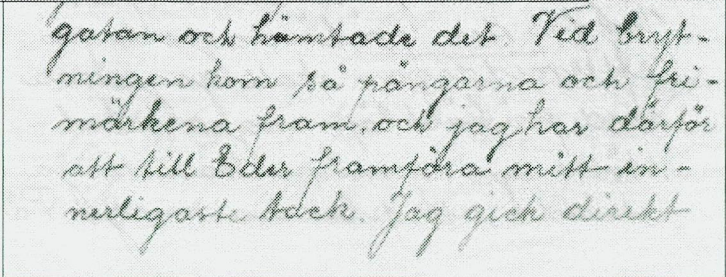 gatan och hämtade det. Vid bryt-
ningen kom så pängarna och fri-
märkena fram, och jag har därför
att till Eder framföra mitt in-
nerligaste tack. Jag gick direkt